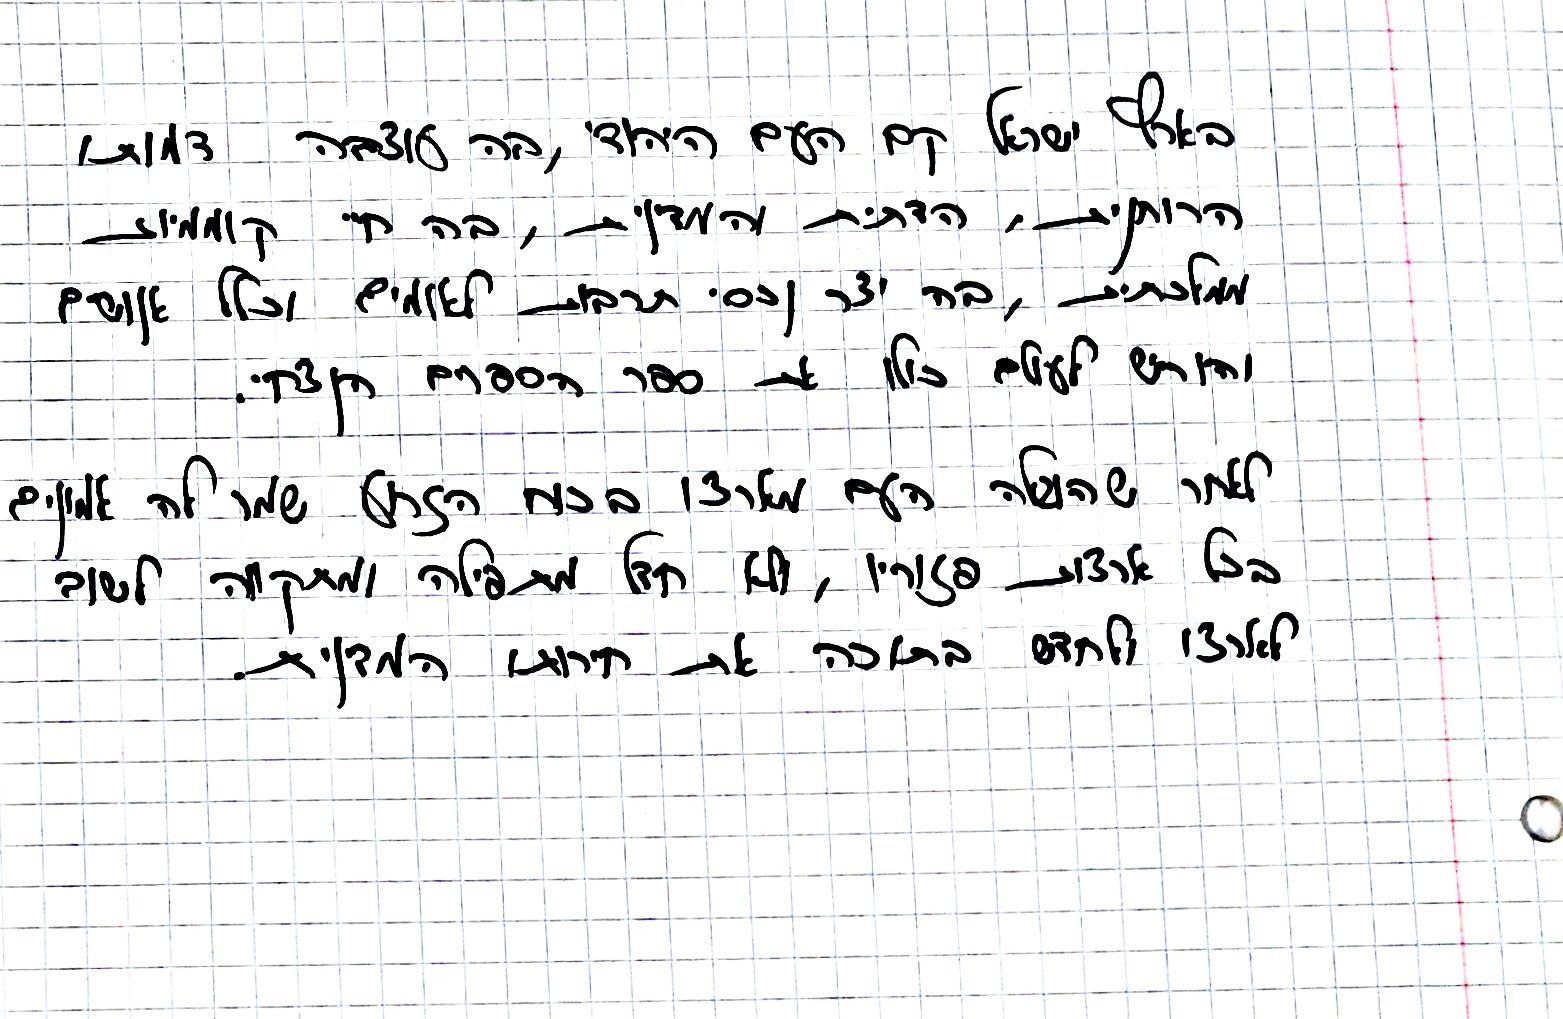 בארץ ישראל קם העם היהודי, בה עוצבה דמותו
הרוחנית, הדתית והמדינית, בה חיי קוממיות
ממלכתית, בה יצר נכסי תרבות לאומיים וכלל אנושיים
והוריש לעולם כולו את ספר הספרים הנצחי.
לאחר שהוגלה העם מארצו בכוח הזרוע שמר לה אמונים
בכל ארצות פזוריו, ולא חדל מתפילה ומתקווה לשוב
לארצו ולחדש בתוכה את חירותו המדינית.